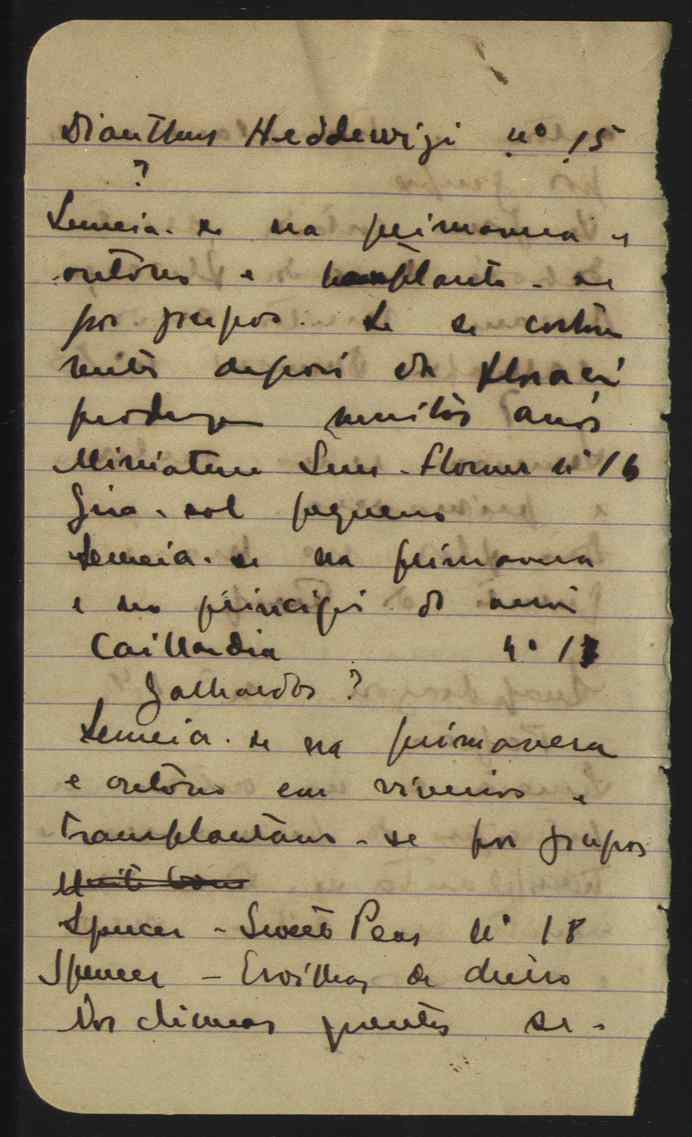 Dianthus Heddewigi nº 15
?
Semeia-se na primavera e
outôno e transplanta-se
por grupos. Se se corta
muito depois da floração
produz muitos anos
Miniature Sun-Flower nº 16
Gira-sol pequeno
Semeia-se na primavera
e no principio do
Caillardia nº 17
Galhardos ?
Semeia-se na primavera
e outôno em viveiros e
transplantam-se por grupos
Spencer - Sweet Peas Nº 18
Spencer - Ervilhas de cheiro
Nos climas quentes se-